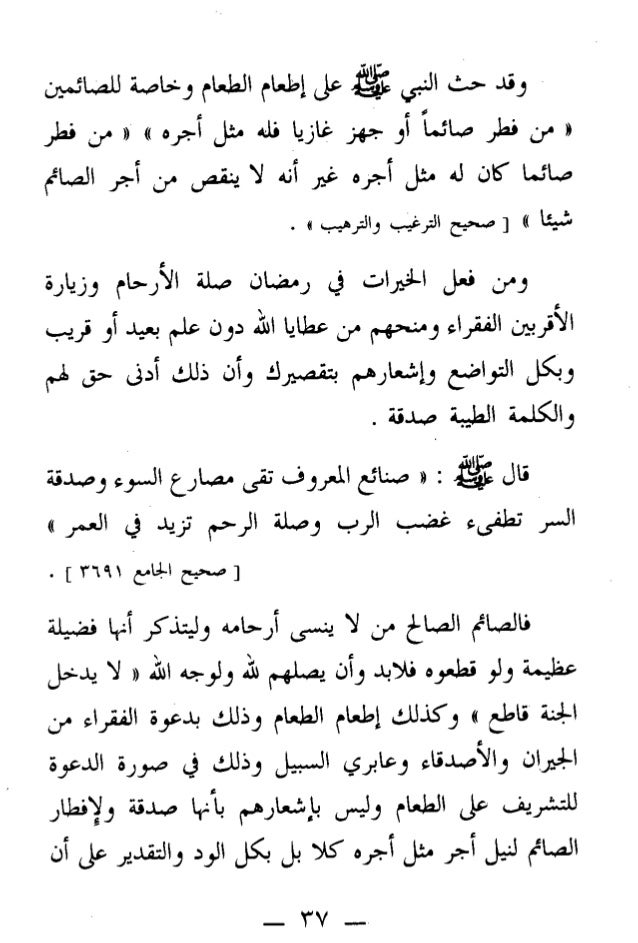 وقد حث النبي ﷺ على إطعام الطعام وخاصة للصائمين
« من فطر صائماً أو جهز غازيا فله مثل أجره » « من فطر
صائما كان له مثل أجره غير أنه لا ينقص من أجر الصائم
شيئا » [ صحيح الترغيب والترهيب » .
ومن فعل الخيرات في رمضان صلة الأرحام وزيارة
الأقربين الفقراء ومنحهم من عطايا الله دون علم بعيد أو قريب
وبكل التواضع وإشعارهم بتقصيرك وأن ذلك أدنى حق لهم
والكلمة الطيبة صدقة .
قال ﷺ : « صنائع المعروف تقى مصارع السوء وصدقة
السر تطفىء غضب الرب وصلة الرحم تزيد في العمر »
[ صحيح الجامع ٣٦٩١ ] .
فالصائم الصالح من لا ينسى أرحامه وليتذكر أنها فضيلة
عظيمة ولو قطعوه فلابد وأن يصلهم لله ولوجه الله « لا يدخل
الجنة قاطع » وكذلك إطعام الطعام وذلك بدعوة الفقراء من
الجيران والأصدقاء وعابري السبيل وذلك في صورة الدعوة
للتشريف على الطعام وليس بإشعارهم بأنها صدقة ولإفطار
الصائم لنيل أجر مثل أجره كلا بل بكل الود والتقدير على أن
— ٣٧ —